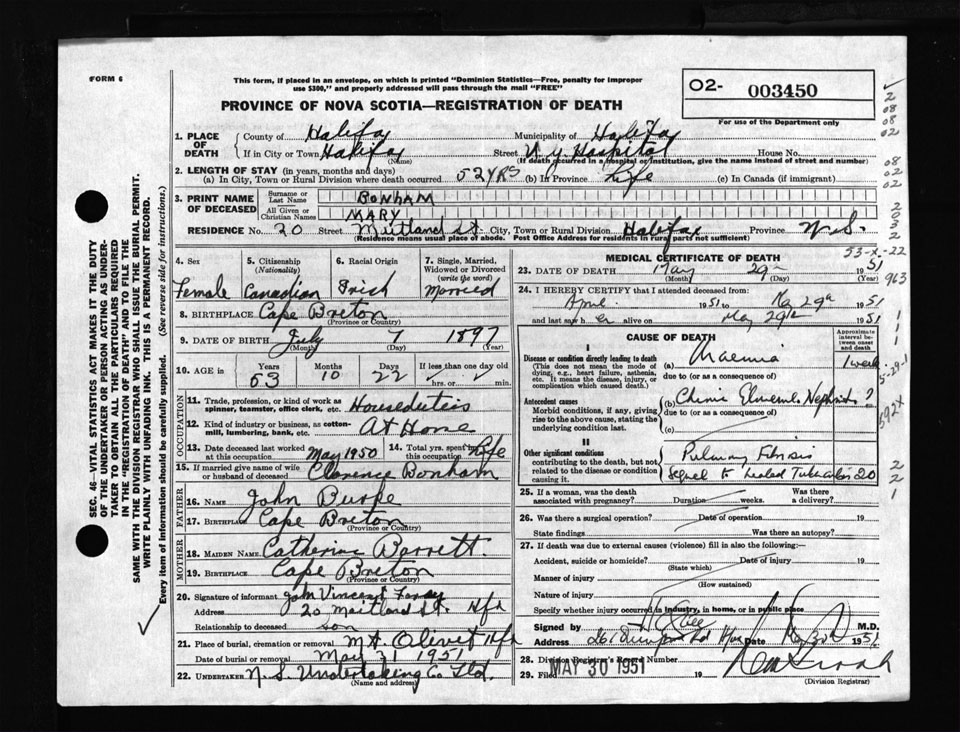 FORM 6
This form, if placed in an envelope, on which is printed "Dominion Statistics—Free, penalty for improper
use $300," and properly addressed will pass through the mail "FREE"
PROVINCE OF NOVA SCOTIA—REGISTRATION OF DEATH
O2- 003450
For use of the Department only
1. PLACE OF DEATH
County of Halifax Municipality of Halifax
If in City or Town Halifax (Name) Street Hospital House No.
(If death occurred in a hospital or institution, give the name instead of street and number)
2. LENGTH OF STAY (in years, months and days)
(a) In City, Town or Rural Division where death occurred 52 YRS (b) In Province Life (c) In Canada (if immigrant)
3. PRINT NAME OF DECEASED
Surname or Last Name BONHAM
All Given or Christian Names MARY
RESIDENCE No. 20 Street Maitland St. City, Town or Rural Division Halifax Province N.S.
(Residence means usual place of abode. Post Office Address for residents in rural parts not sufficient)
4. Sex Female
5. Citizenship (Nationality) Canadian
6. Racial Origin Irish
7. Single, Married, Widowed or Divorced (write the word) Married
8. BIRTHPLACE Cape Breton
(Province or Country)
9. DATE OF BIRTH July (Month) 7 (Day) 1897 (Year)
10. AGE Years 53 Months 10 Days 22 If less than one day old hrs. or min.
OCCUPATION
11. Trade, profession, or kind of work as spinner, teamster, office clerk, etc.
12. Kind of industry or business, as cotton-mill, lumbering, bank, etc. At Home
13. Date deceased last worked at this occupation May 1950 14. Total yrs. spent in this occupation Life
15. If married give name of wife or husband of deceased Clarence Bonham
FATHER
16. NAME John Burke
17. BIRTHPLACE Cape Breton
(Province or Country)
MOTHER
18. MAIDEN NAME Catherine Barrett.
19. BIRTHPLACE Cape Breton
(Province or Country)
20. Signature of informant John Vincent
Address 20 Maitland St. Hfx
Relationship to deceased son
21. Place of burial, cremation or removal Mt. Olivet Hfx
Date of burial or removal May 31 1951
22. UNDERTAKER N.S. Undertaking Co Ltd.
(Name and address)
MEDICAL CERTIFICATE OF DEATH
53-X-22
23. DATE OF DEATH May (Month) 29th (Day) 1951 (Year)
963
24. I HEREBY CERTIFY that I attended deceased from:
April 1951 to May 29th 1951
and last saw her alive on May 29th 1951
CAUSE OF DEATH
Approximate interval between onset and death
I
Disease or condition directly leading to death
(This does not mean the mode of dying, e.g., heart failure, asthenia, etc. It means the disease, injury, or complication which caused death.)
(a) Uraemia 1 week
due to (or as a consequence of)
Antecedent causes
Morbid conditions, if any, giving rise to the above cause, stating the underlying condition last.
(b) Nephritis ?
due to (or as a consequence of)
(c)
5-29-1
592X
II
Other significant conditions
contributing to the death, but not related to the disease or condition causing it.
Pulmonary Fibrosis
to healed Tuberculosis 20
25. If a woman, was the death associated with pregnancy? Duration weeks. Was there a delivery?
26. Was there a surgical operation? Date of operation 19
State findings Was there an autopsy?
27. If death was due to external causes (violence) fill in also the following:—
Accident, suicide or homicide? Date of injury 19
(State which)
Manner of injury
(How sustained)
Nature of injury
Specify whether injury occurred in industry, in home, or in public place
Signed by M.D.
Address Date 1951
28. Division Registrar's Record Number
29. Filed MAY 30 1951 19
(Division Registrar)
SEC. 46—VITAL STATISTICS ACT MAKES IT THE DUTY
OF THE UNDERTAKER OR PERSON ACTING AS UNDER-
TAKER TO OBTAIN ALL THE PARTICULARS REQUIRED
IN THE "REGISTRATION OF DEATH" AND TO FILE THE
SAME WITH THE DIVISION REGISTRAR WHO SHALL ISSUE THE BURIAL PERMIT.
WRITE PLAINLY WITH UNFADING INK. THIS IS A PERMANENT RECORD.
Every item of information should be carefully supplied. (See reverse side for instructions.)